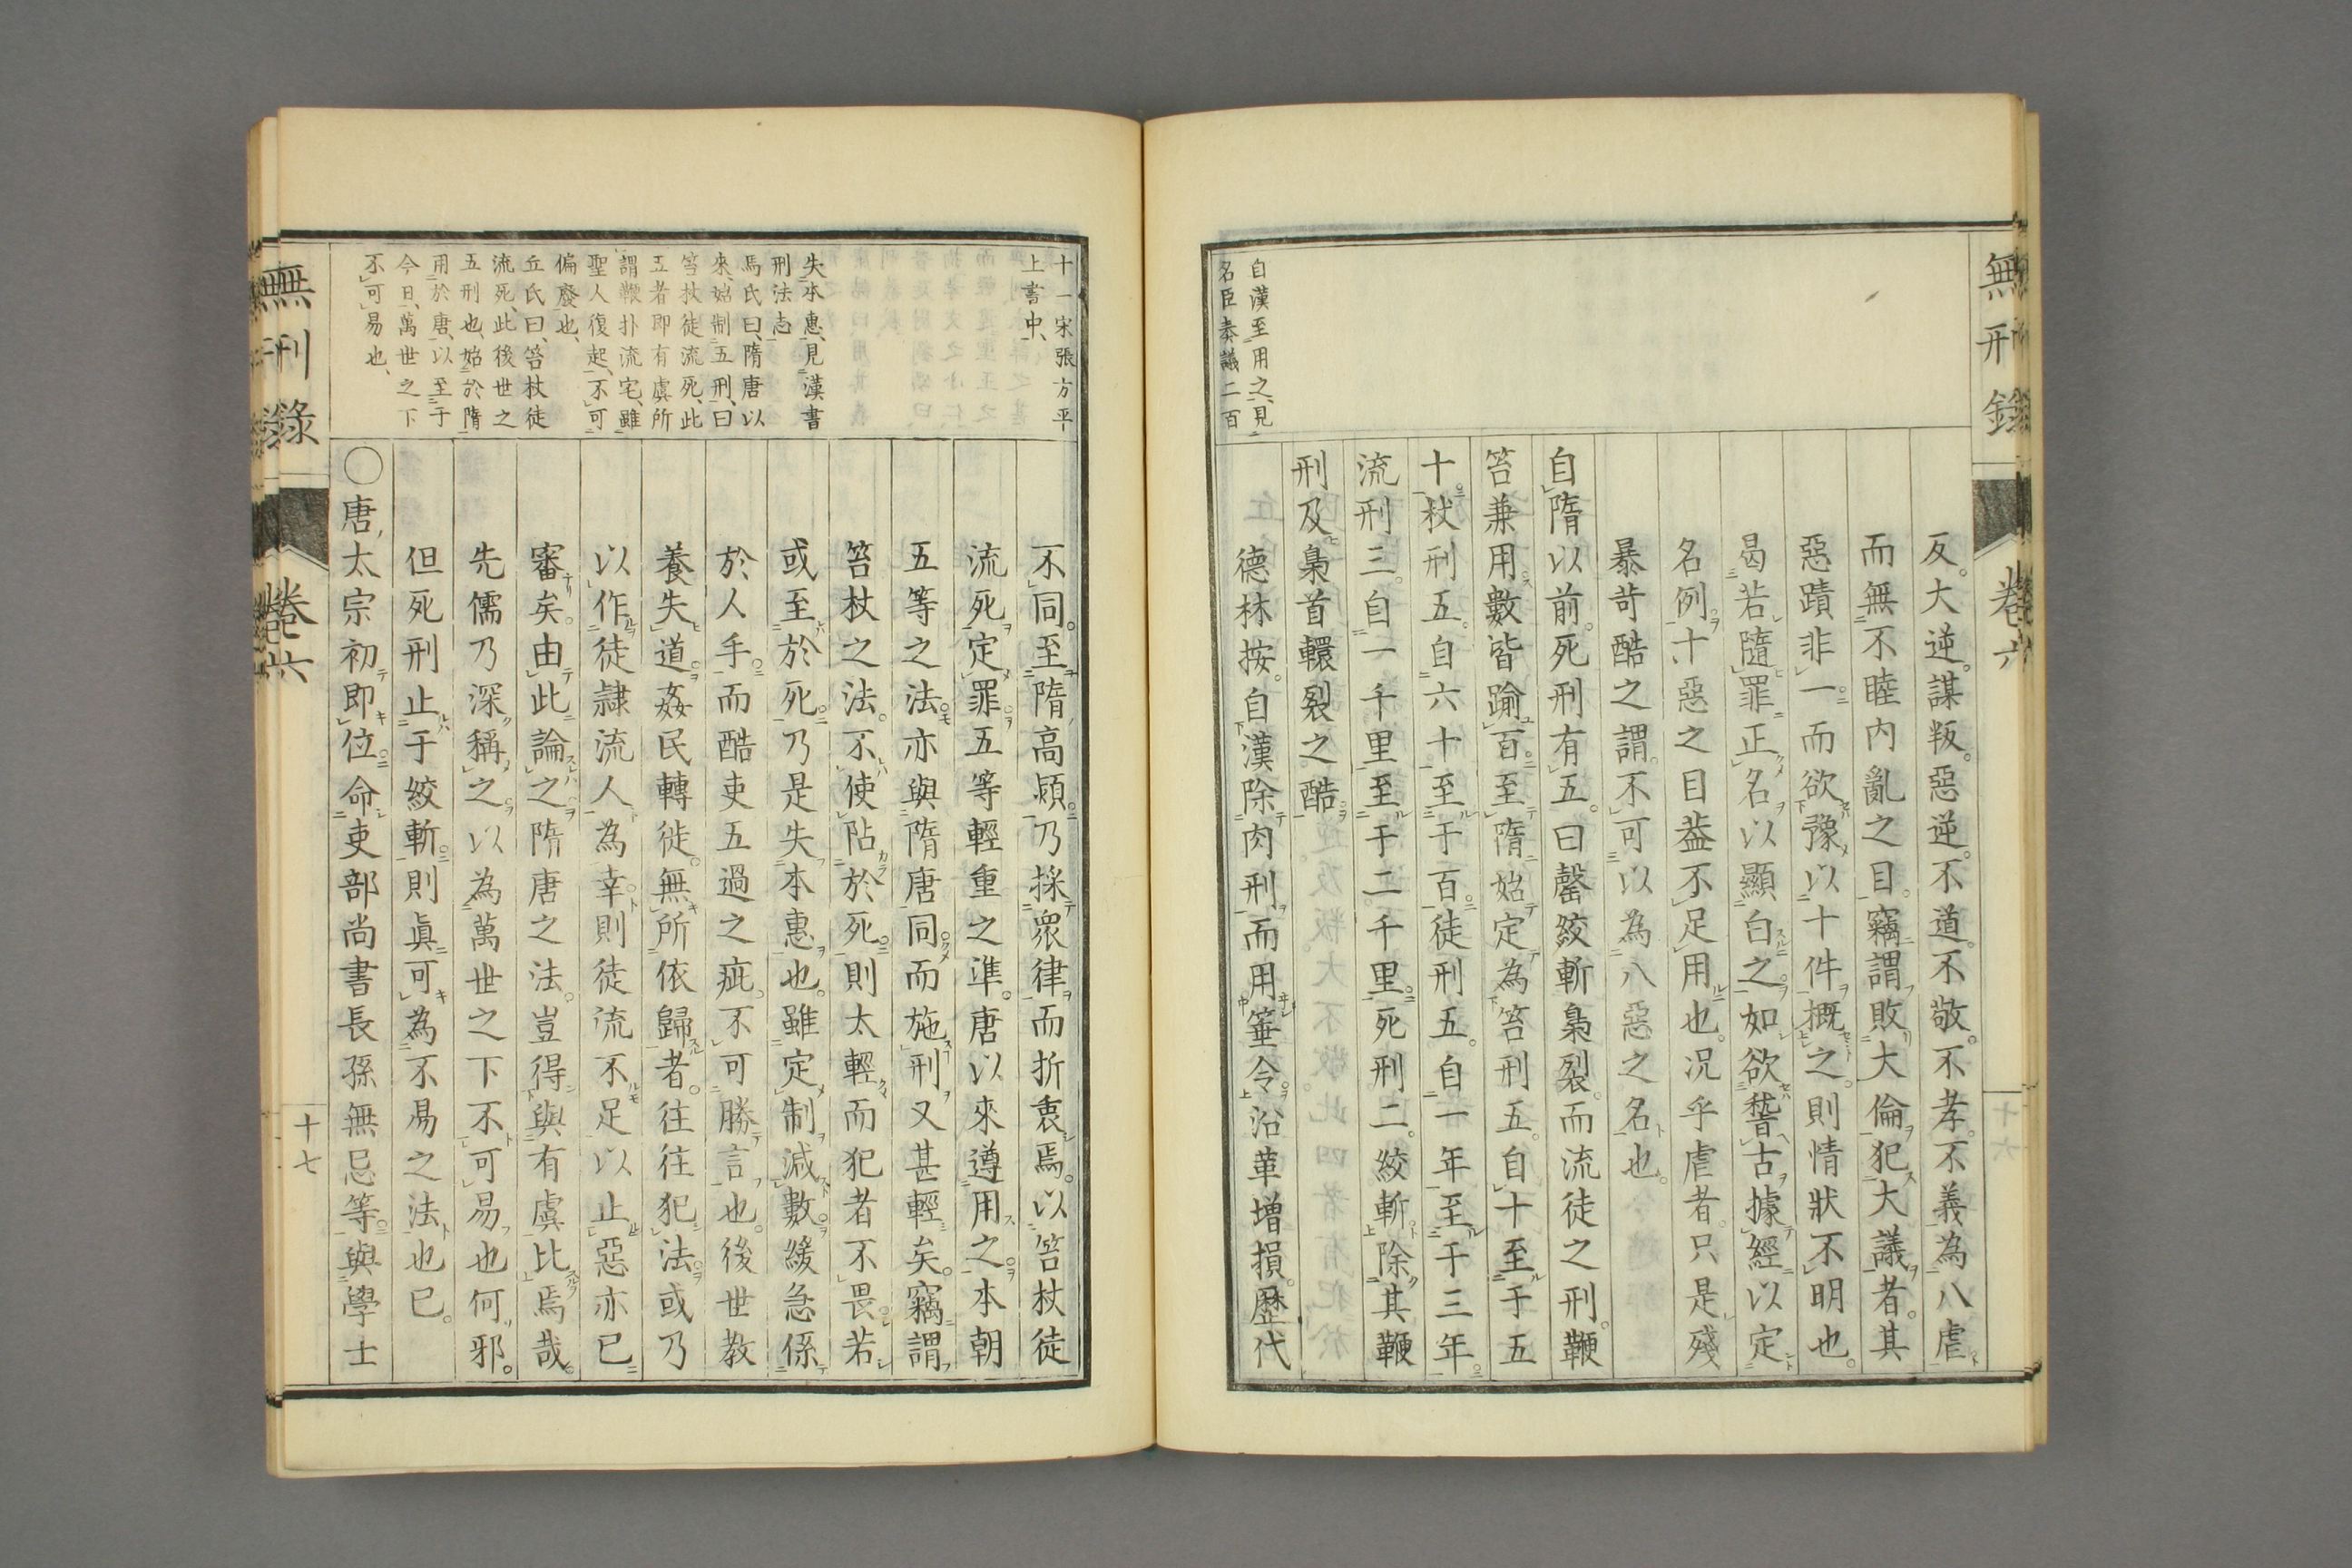 無刑錄
卷六
十六
反。大逆。謀叛。惡逆。不道。不敬。不孝。不義為八虐
而無不睦內亂之目。竊謂敗大倫犯大議者。其
惡蹟非一而欲豫以十件概之。則情狀不明也。
曷若隨罪正名以顯白之。如欲稽古據經以定
名例。十惡之目葢不足用也。況乎虐者。只是殘
暴苛酷之謂。不可以為八惡之名也。
自隋以前。死刑有五。曰罄絞斬梟裂。而流徒之刑。鞭
笞兼用。數皆踰百。至隋始定為笞刑五。自十至于五
十。杖刑五。自六十至于百。徒刑五。自一年至于三年。
流刑三。自一千里至于二千里。死刑二。絞斬。除其鞭
刑及梟首轘裂之酷。
德林按。自漢除肉刑而用箠令。沿革增損。歷代
自漢至用之、見
名臣奏議二百
十一宋張方平
上書中、
失本惠、見漢書
刑法志
馬氏曰、隋唐以
來、始制五刑、曰
笞杖徒流死、此
五者即有虞所
謂鞭扑流宅、雖
聖人復起、不可
偏廢也、
丘氏曰、笞杖徒
流死、此後世之
五刑也、始於隋
用於唐、以至于
今日、萬世之下
不可易也、
不同。至隋高熲。乃採衆律而折衷焉。以笞杖徒
流死定罪五等輕重之準。唐以來遵用之。本朝
五等之法。亦與隋唐同。而施刑又甚輕矣。竊謂
笞杖之法。不使阽於死。則太輕而犯者不畏。若
或至於死。乃是失本惠也。雖定制減數。緩急係
於人手。而酷吏五過之疵。不可勝言也。後世教
養失道。姦民轉徙。無所依歸者。往往犯法。或乃
以作徒隷流人為幸。則徒流不足以止惡亦已
審矣。由此論之。隋唐之法。豈得與有虞比焉哉。
先儒乃深稱之。以為萬世之下不可易也何邪。
但死刑止于絞斬。則眞可為不易之法也已。
○唐太宗初即位。命吏部尚書長孫無忌等。與學士
無刑錄
卷六
十七